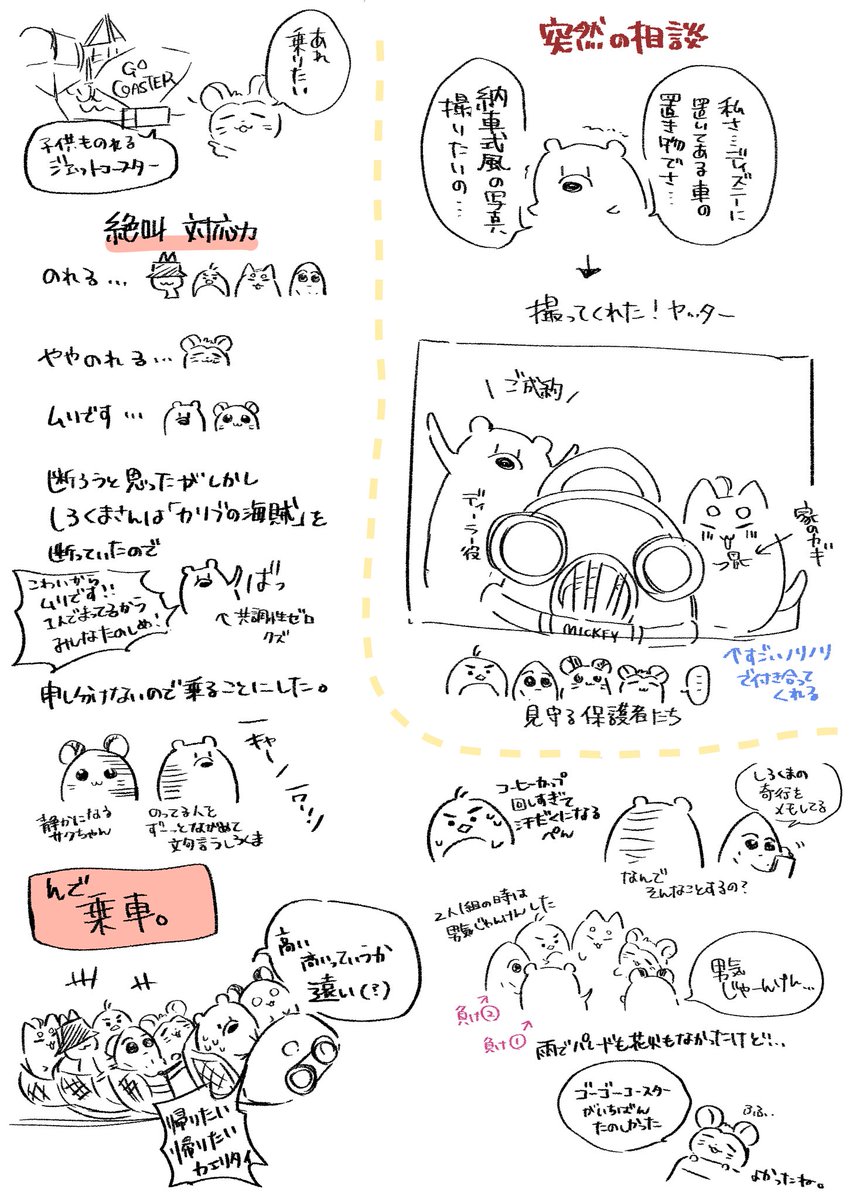 突然の相談
私さ…ディズニーに
置いてある車の
置き物でさ…
納車式風の写真、
撮りたいの…
↓
撮ってくれた！ヤッター
\ご成約/
ディーラー役
家のカギ
MICKEY
↑すごいノリノリ
で付き合って
くれる
見守る保護者たち
GO
COASTER
あれ
乗りたい
子供ものれる
ジェットコースター
絶叫 対応力
のれる…
ややのれる…
ムリです…
断ろうと思ったがしかし
しろくまさんは「カリブの海賊」を
断っていたので
こわいから
ムリです!!
1人でまってるから
みんなたのしめ！
ばっ
↑共調性ゼロ
クズ
申し分けないので乗ることにした。
静かになる
サクちゃん
のってる人を
ずーっとながめて
文句言うしろくま
キャー
ワーッ
んで
乗車。
高い
高いっていうか
遠い(?)
帰りたい
帰りたい
カエリタイ
コーヒーカップ
回しすぎて
汗だくになる
ぺん
なんで
そんなことするの？
しろくまの
奇行を
メモしてる
2人1組の時は
男気じゃんけんした
男気
じゃーんけん…
負け②
負け①
雨でパレードも花火もなかったけど…
ゴーゴーコースター
がいちばん
たのしかった
ふふ…
よかったね。